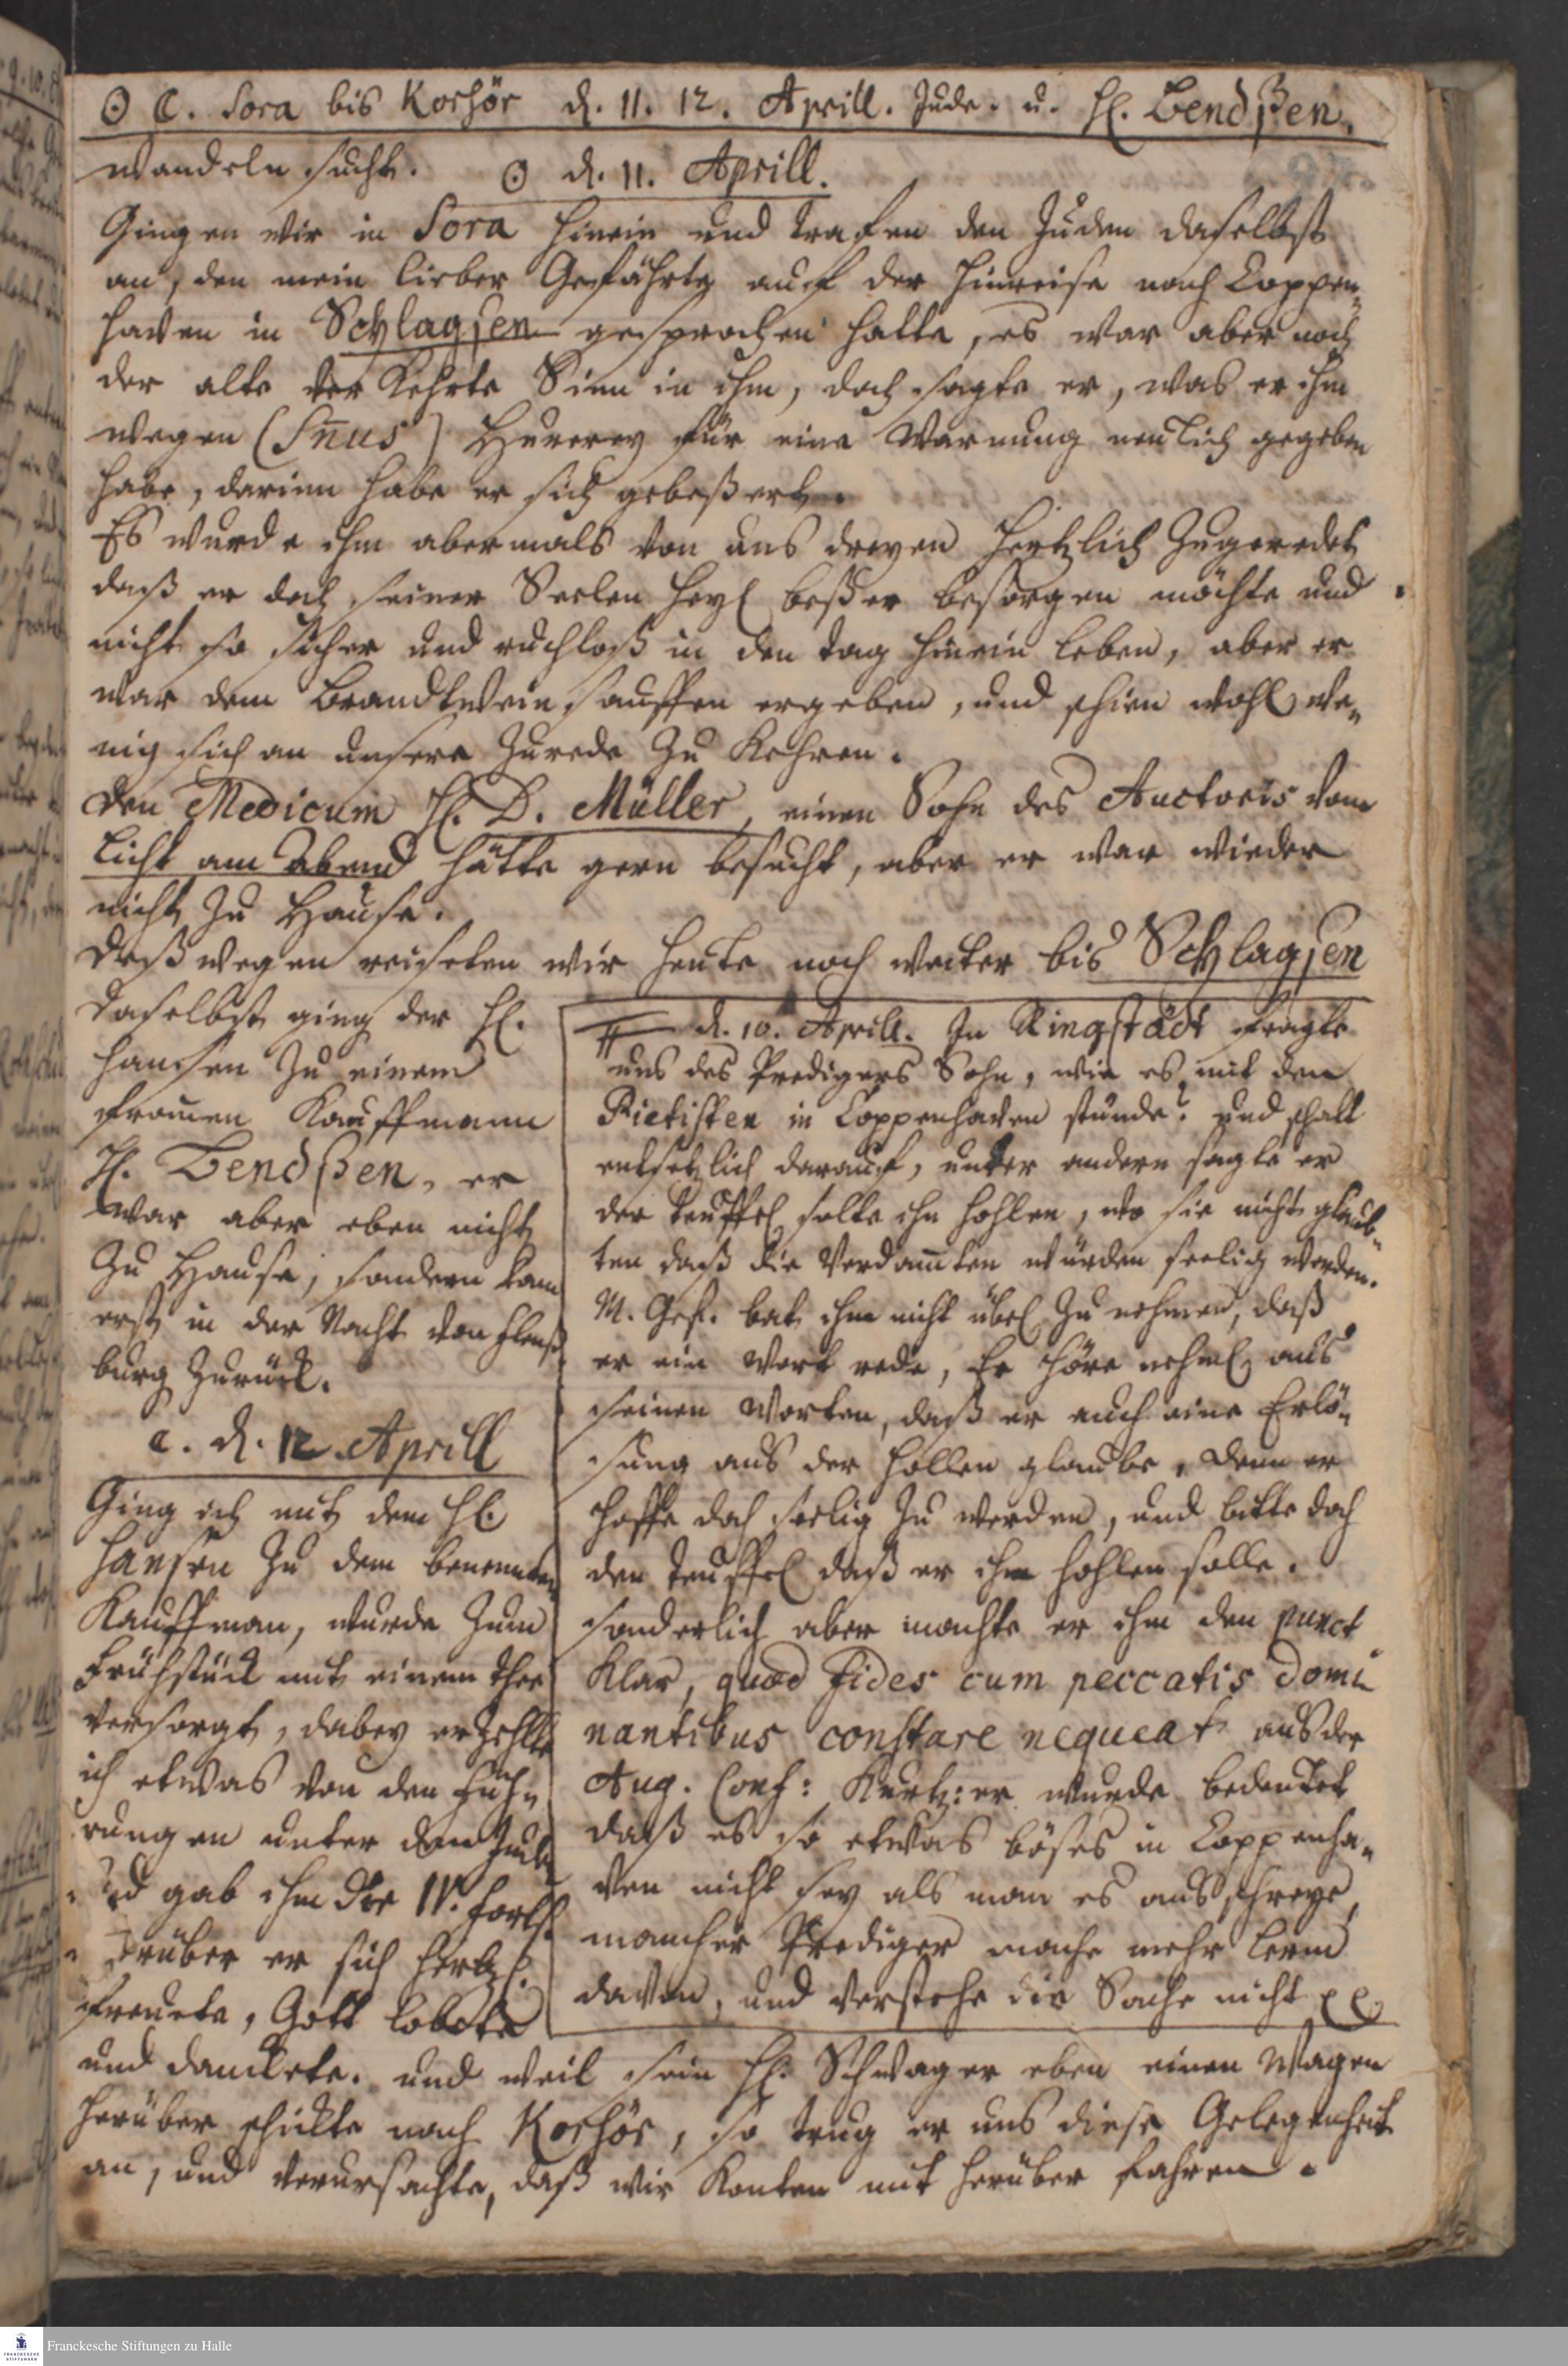 ☉ ☾. Sora bis Korsör d. 11. 12. Aprill. Jude. u. H. Bendßen.
wandeln sucht. ☉ d. 11. Aprill.
Gingen wir in Sora hinein und trafen den Juden daselbst
an, den mein lieber Gefährte auf der Hinreise nach Coppen-
haven in Schlagsen gesprochen hatte, es war aber noch
der alte verkehrte Sinn in ihm, doch sagte er, was er ihm
wegen Hurerey für eine Warnung neulich gegeben
habe, darinn habe er sich gebeßert.
Es wurde ihm abermals von uns dreyen hertzlich zugeredet
daß er doch seiner Seelen Heyl beßer besorgen möchte und
nicht so sicher und ruchloß in den Tag hinein leben, aber er
war dem Brandtwein sauffen ergeben, und schien wohl we-
nig sich an unsere Zurede zu kehren.
Den Medicum H. D. Müller, einen Sohn des Auctoris vom
Licht am Abend hätte gern besucht, aber er war wieder
nicht zu Hause.
Deßwegen reiseten wir heute noch weiter bis Schlagsen
Daselbst ging der H.
Hansen zu einem
fromen Kauffmann
H. Bendßen, er
war aber eben nicht
zu Hause, sondern kam
erst in der Nacht von Flenß-
burg zurück.
☾. d. 12. Aprill
Ging ich mit dem H.
Hansen zu dem benennten
Kauffman, wurde zum
Frühstück mit einem Thee
versorgt, dabey erzehlte
ich etwas von den Füh-
rungen unter den Juden
und gab ihm die IV. Forts.
drüber er sich hertzl.
freuete, Gott lobete
d. 10. Aprill. In Ringstädt fragte
uns des Predigers Sohn, wie es mit den
Pietisten in Coppenhaven stünde? und schalt
entsetzlich darauf, unter andern sagte er
der Teuffel solte ihn hohlen, wo sie nicht glaub-
ten daß die Verdamten würden seelig werden.
M. Gef. bat ihm nicht übel zu nehmen, daß
er ein Wort rede, Er höre nehml. aus
seinen Worten, daß er auch eine Erlö-
sung aus der Höllen glaube, denn er
hoffe doch seelig zu werden, und bitte doch
den Teuffel daß er ihn hohlen solle.
sonderlich aber machte er ihm den Punct
klar, quod fides cum peccatis domi-
nantibus constare nequeat aus der
Aug. Conf: Kurtz: er wurde bedeutet
daß es so etwas böses in Coppenha-
ven nicht sey als man es ausschreye,
mancher Prediger mache mehr Lerm
davon, und verstehe die Sache nicht
und danckete. und weil sein H. Schwager eben einen Wagen
herüber schickte nach Korsör, so trug er uns diese Gelegenheit
an, und verursachte, daß wir konten mit herüber fahren.
Franckesche Stiftungen zu Halle